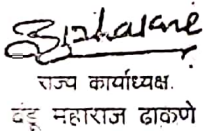 राज्य कार्याध्यक्ष.
दंडू महाराज ढाकणे